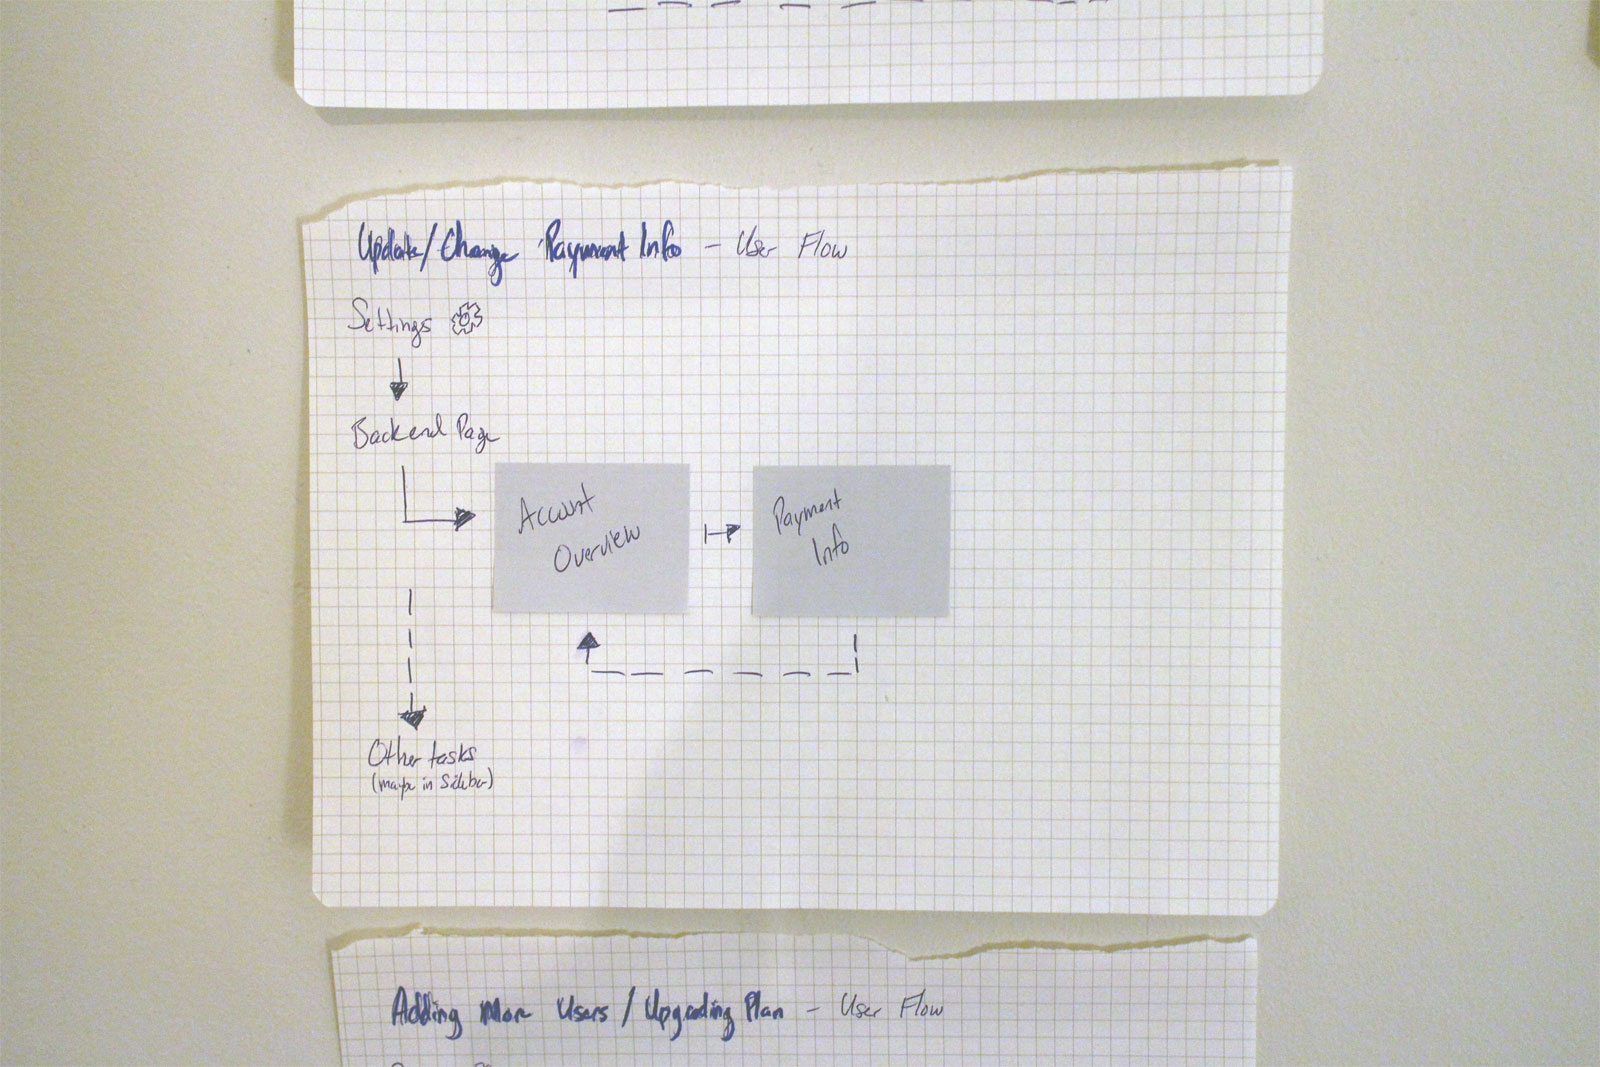 Update/Change Payment Info - User Flow
Settings
Backend Page
Account
Overview
Payment
Info
Other tasks
(maybe in Sidebar)
Adding More Users / Upgrading Plan - User Flow